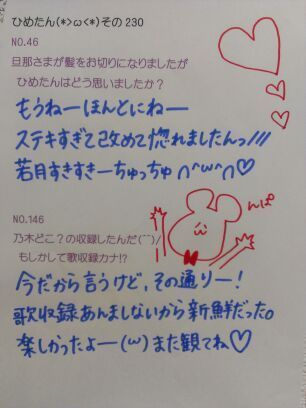 ひめたん(*>ω<*)その230
NO.46
旦那さまが髪をお切りになりましたが
ひめたんはどう思いましたか？
もうねーほんとにねー
ステキすぎて改めて惚れましたんっ///
若月すきすきーちゅっちゅ∩^ω^∩♡
んぱ
NO.146
乃木どこ？の収録したんだ(¯¯)/
もしかして歌収録カナ!?
今だから言うけど、その通りー！
歌収録あんましないから新鮮だった。
楽しかったよー(ω)また観てね♡